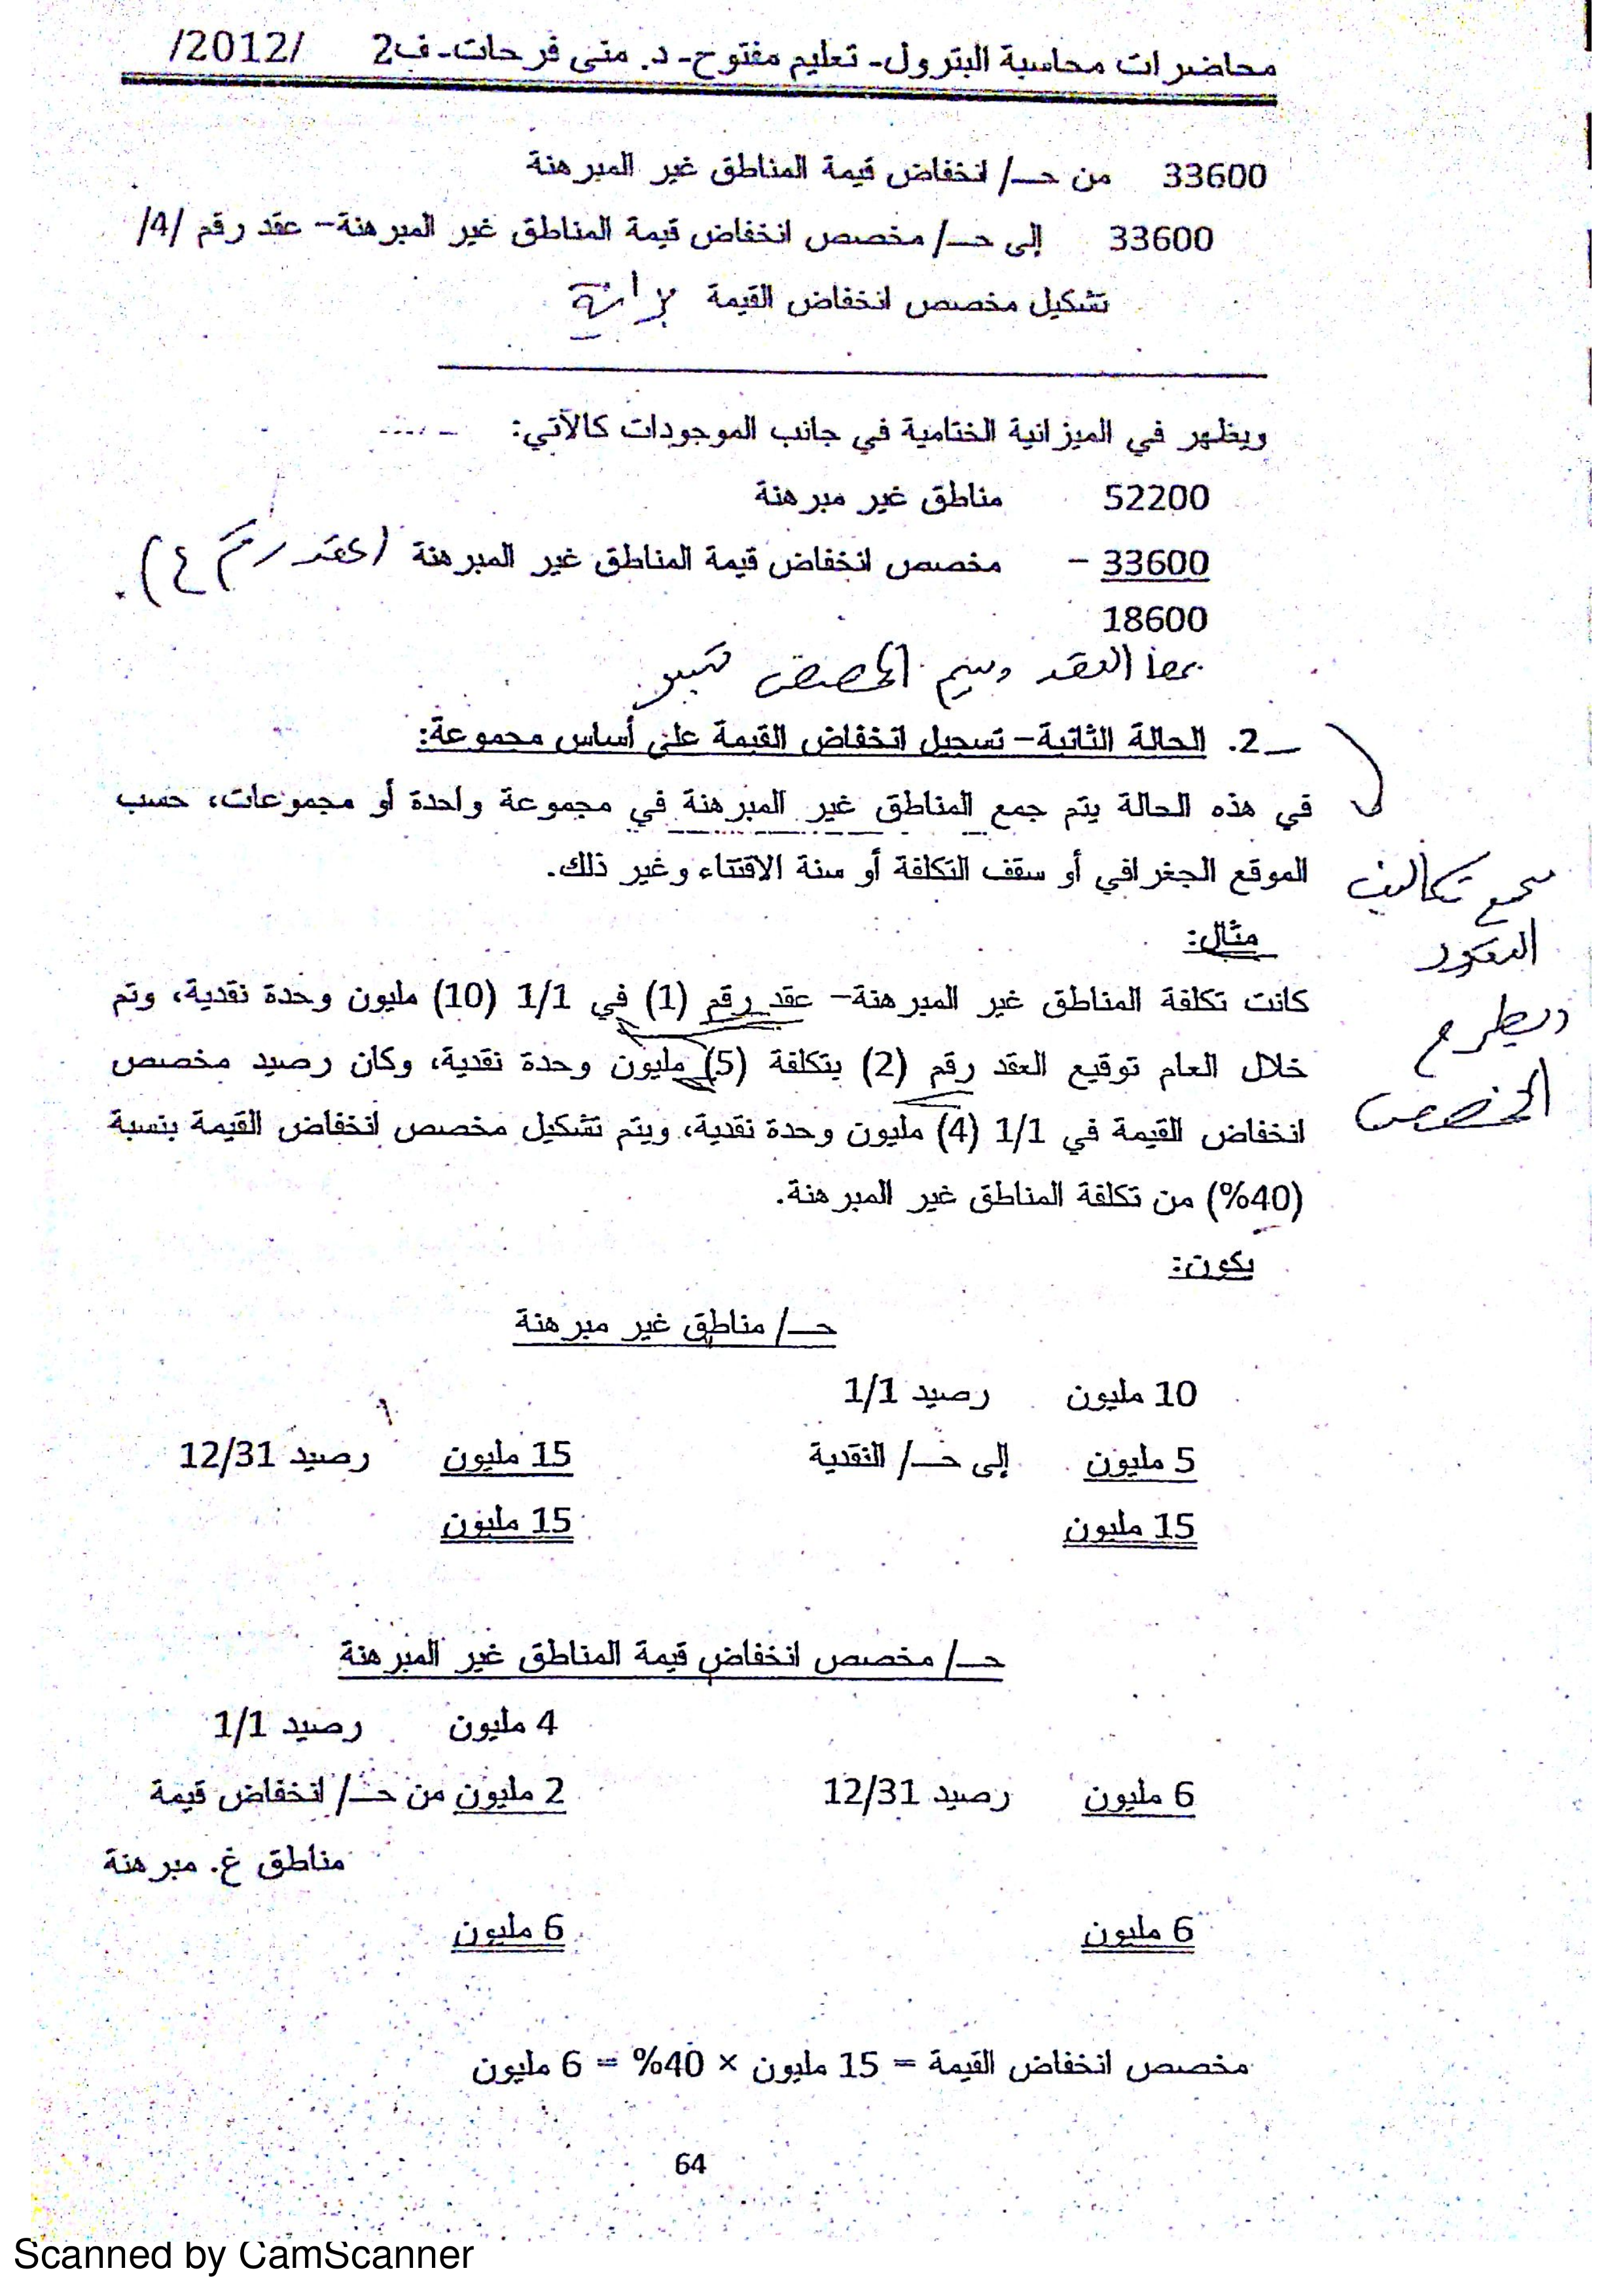 محاضرات محاسبة البترول- تعليم مفتوح- د. منى فرحات- ف2 /2012/
33600 من حـ/ انخفاض قيمة المناطق غير المبرهنة
33600 إلى حـ/ مخصص انخفاض قيمة المناطق غير المبرهنة– عقد رقم /4/
تشكيل مخصص انخفاض القيمة
ويظهر في الميزانية الختامية في جانب الموجودات كالآتي:
52200 مناطق غير مبرهنة
33600 – مخصص انخفاض قيمة المناطق غير المبرهنة (عقد رقم ٤).
18600
العقد
2. الحالة الثانية– تسجيل انخفاض القيمة على أساس مجموعة:
في هذه الحالة يتم جمع المناطق غير المبرهنة في مجموعة واحدة أو مجموعات، حسب
الموقع الجغرافي أو سقف التكلفة أو سنة الاقتناء وغير ذلك.
تكاليف
العقود
ويطرح
المخصص
مثال:
كانت تكلفة المناطق غير المبرهنة– عقد رقم (1) في 1/1 (10) مليون وحدة نقدية، وتم
خلال العام توقيع العقد رقم (2) بتكلفة (5) مليون وحدة نقدية، وكان رصيد مخصص
انخفاض القيمة في 1/1 (4) مليون وحدة نقدية، ويتم تشكيل مخصص انخفاض القيمة بنسبة
(40%) من تكلفة المناطق غير المبرهنة.
يكون:
حـ/ مناطق غير مبرهنة
10 مليون رصيد 1/1
5 مليون إلى حـ/ النقدية 15 مليون رصيد 12/31
15 مليون 15 مليون
حـ/ مخصص انخفاض قيمة المناطق غير المبرهنة
4 مليون رصيد 1/1
6 مليون رصيد 12/31 2 مليون من حـ/ انخفاض قيمة
مناطق غ. مبرهنة
6 مليون 6 مليون
مخصص انخفاض القيمة = 15 مليون × 40% = 6 مليون
64
Scanned by CamScanner